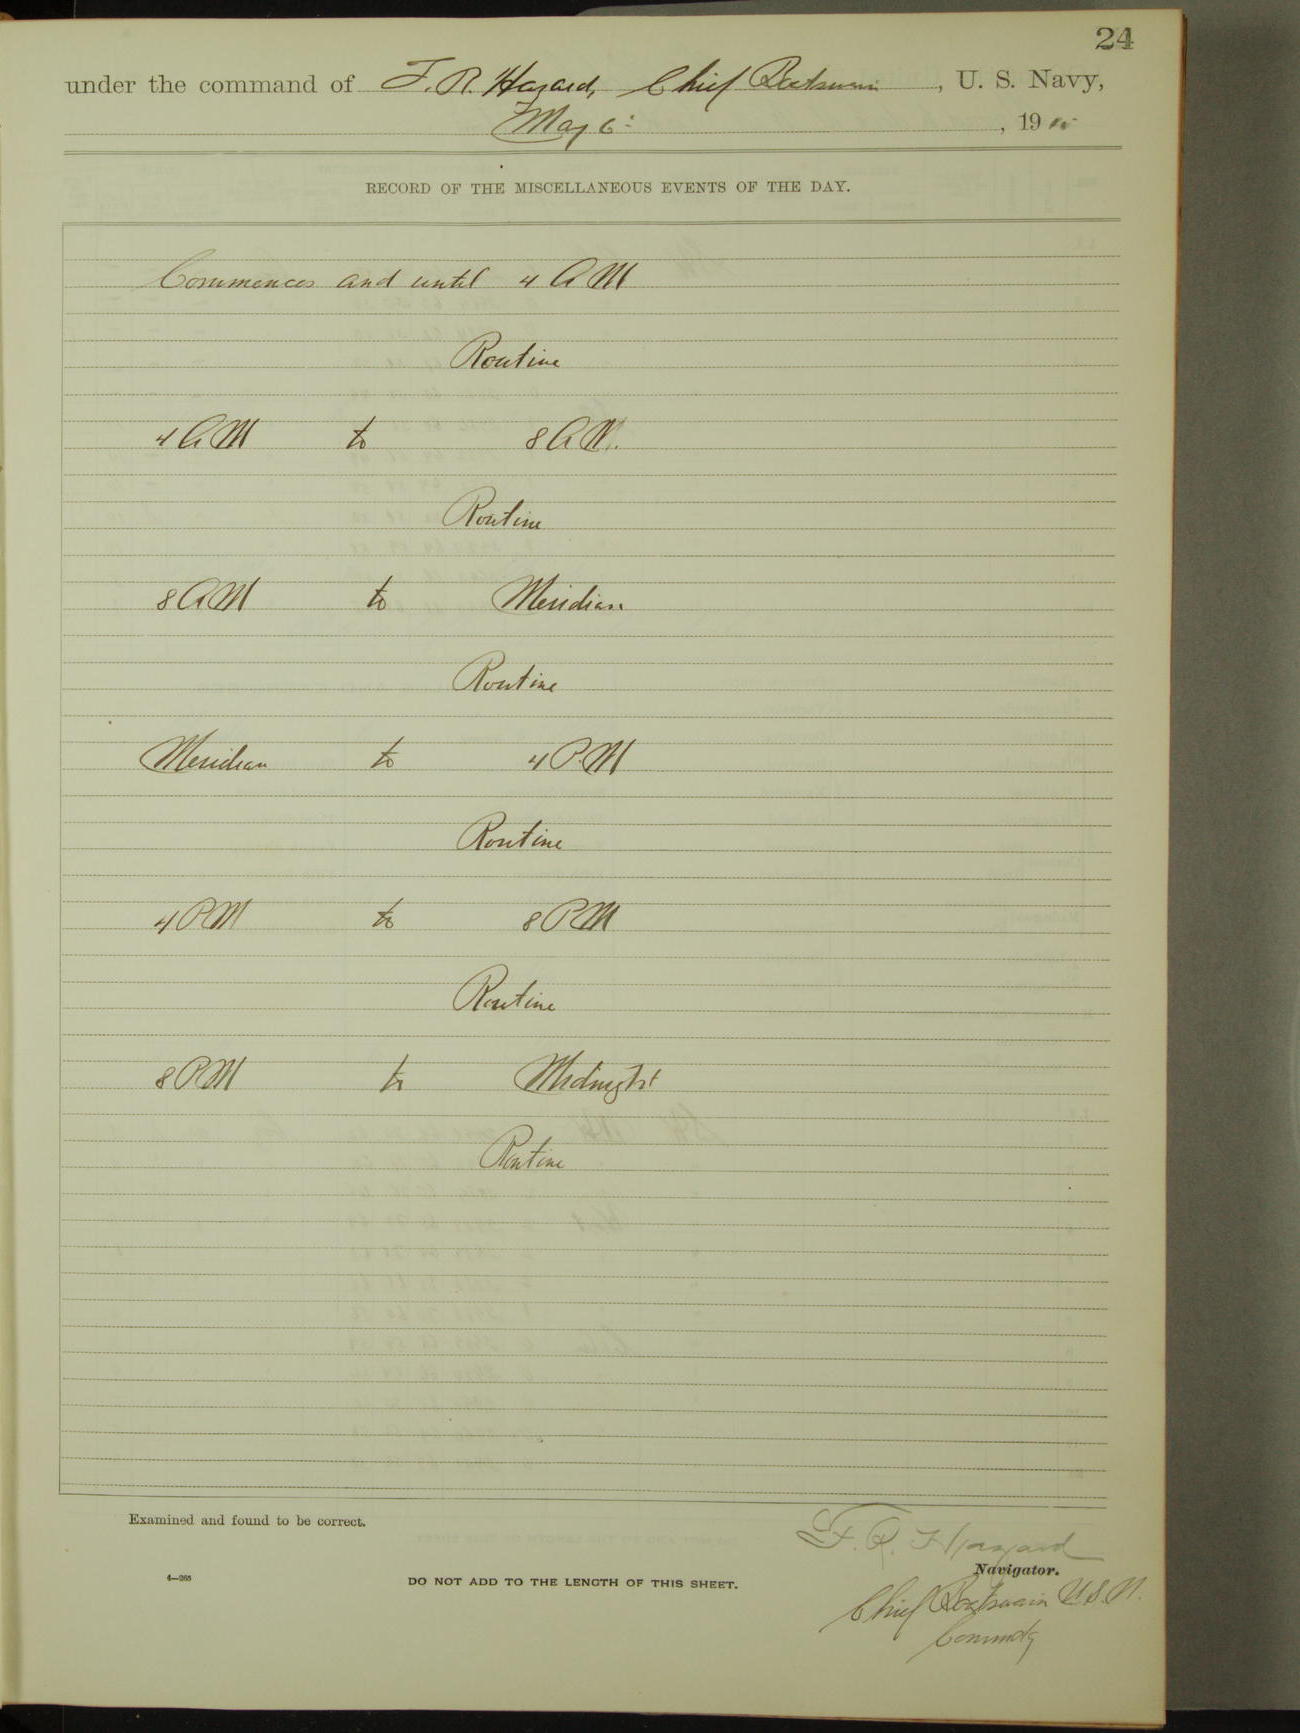 24
under the command of F. R. Hazard, Chief Boatswain, U. S. Navy,
May 6, 19
RECORD OF THE MISCELLANEOUS EVENTS OF THE DAY.
Commences and until 4 AM
Routine
4 AM to 8 AM.
Routine
8 AM to Meridian
Routine
Meridian to 4 P.M
Routine
4 PM to 8 PM
Routine
8 PM to Midnight
Routine
Examined and found to be correct.
F. R. Hazard
Navigator.
4—265
DO NOT ADD TO THE LENGTH OF THIS SHEET.
Chief Boatswain U.S.N.
Commdg